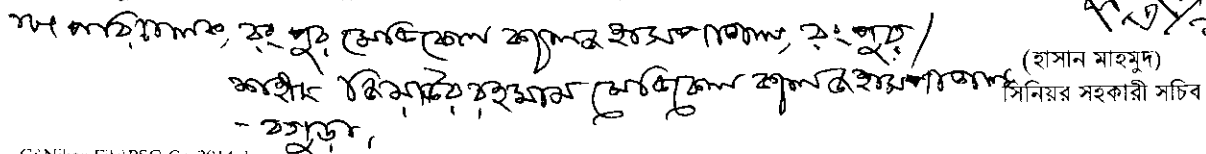 পরিচালক, রংপুর মেডিকেল কলেজ হাসপাতাল, রংপুর/
শহীদ জিয়াউর রহমান মেডিকেল কলেজ হাসপাতাল
- বগুড়া,
(হাসান মাহমুদ)
সিনিয়র সহকারী সচিব